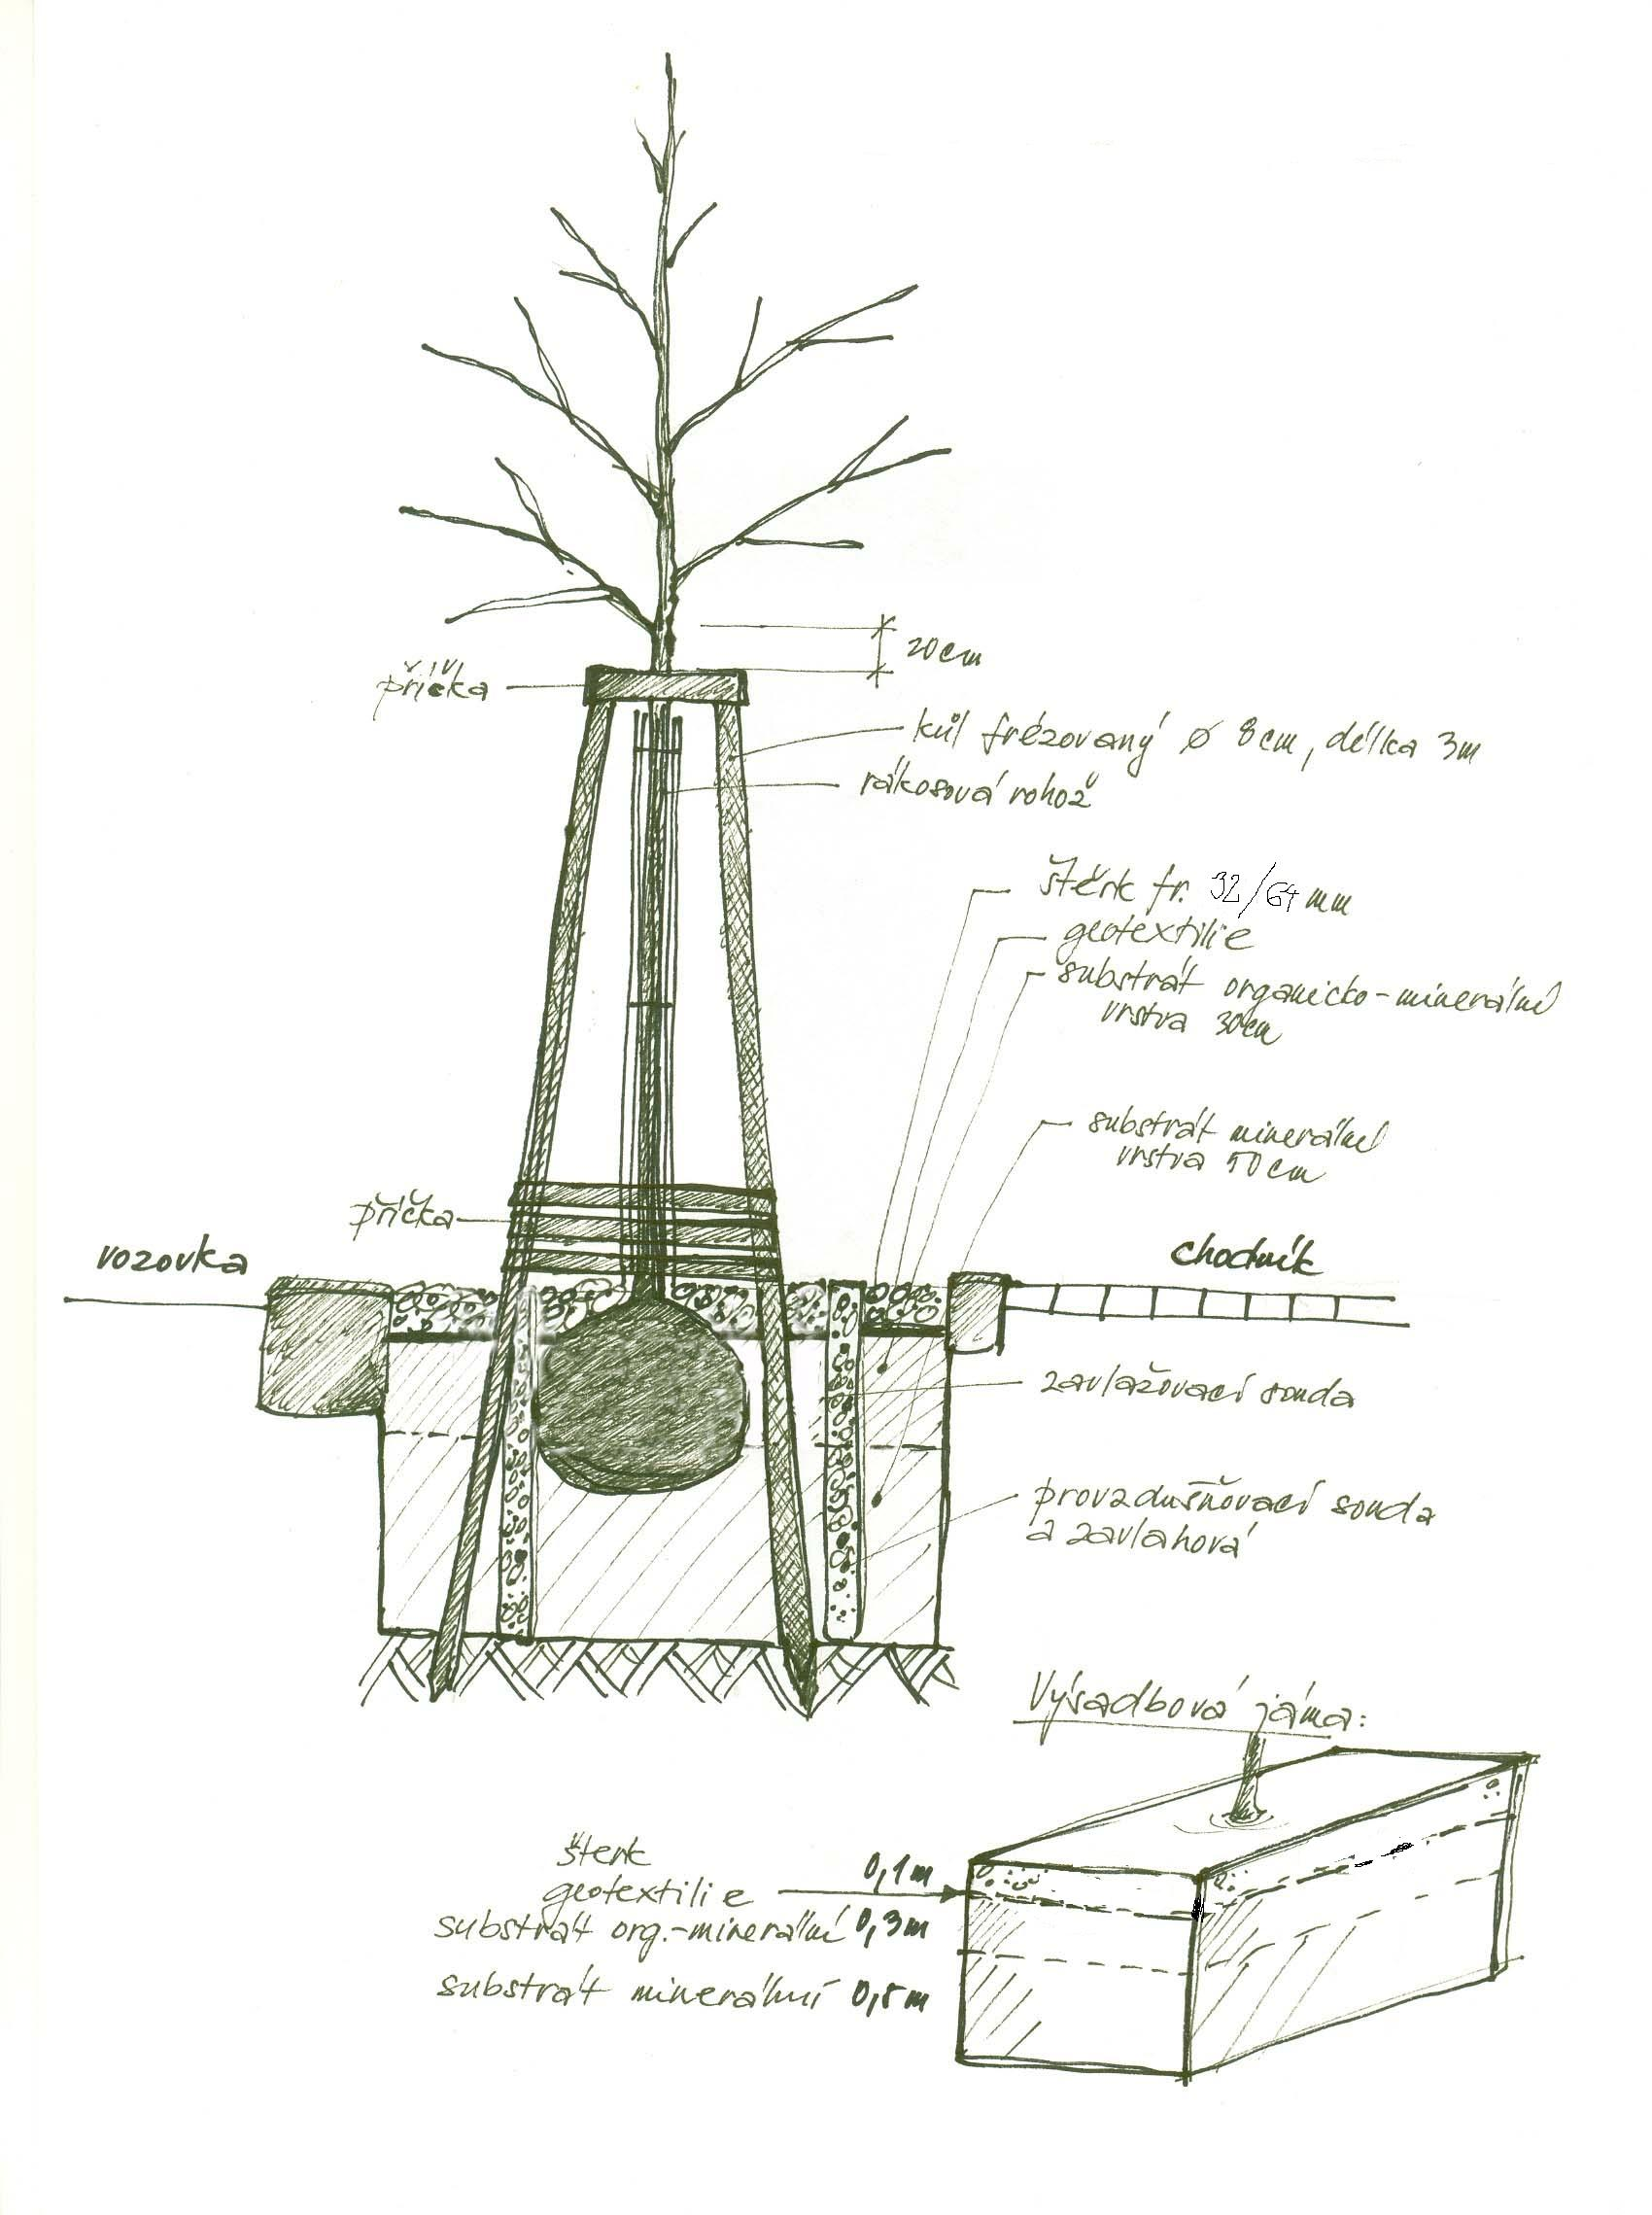 20cm
příčka
kůl frézovaný ø 8cm, délka 3m
rákosová rohož
štěrk fr. 32/64 mm
geotextilie
substrát organicko-minerální
vrstva 30cm
substrát minerální
vrstva 50cm
příčka
vozovka
chodník
zavlažovací sonda
provzdušňovací sonda
a zavlahová
Výsadbová jáma:
šterk 0,1m
geotextilie
substrát org.-minerální 0,3m
substrát minerální 0,5m